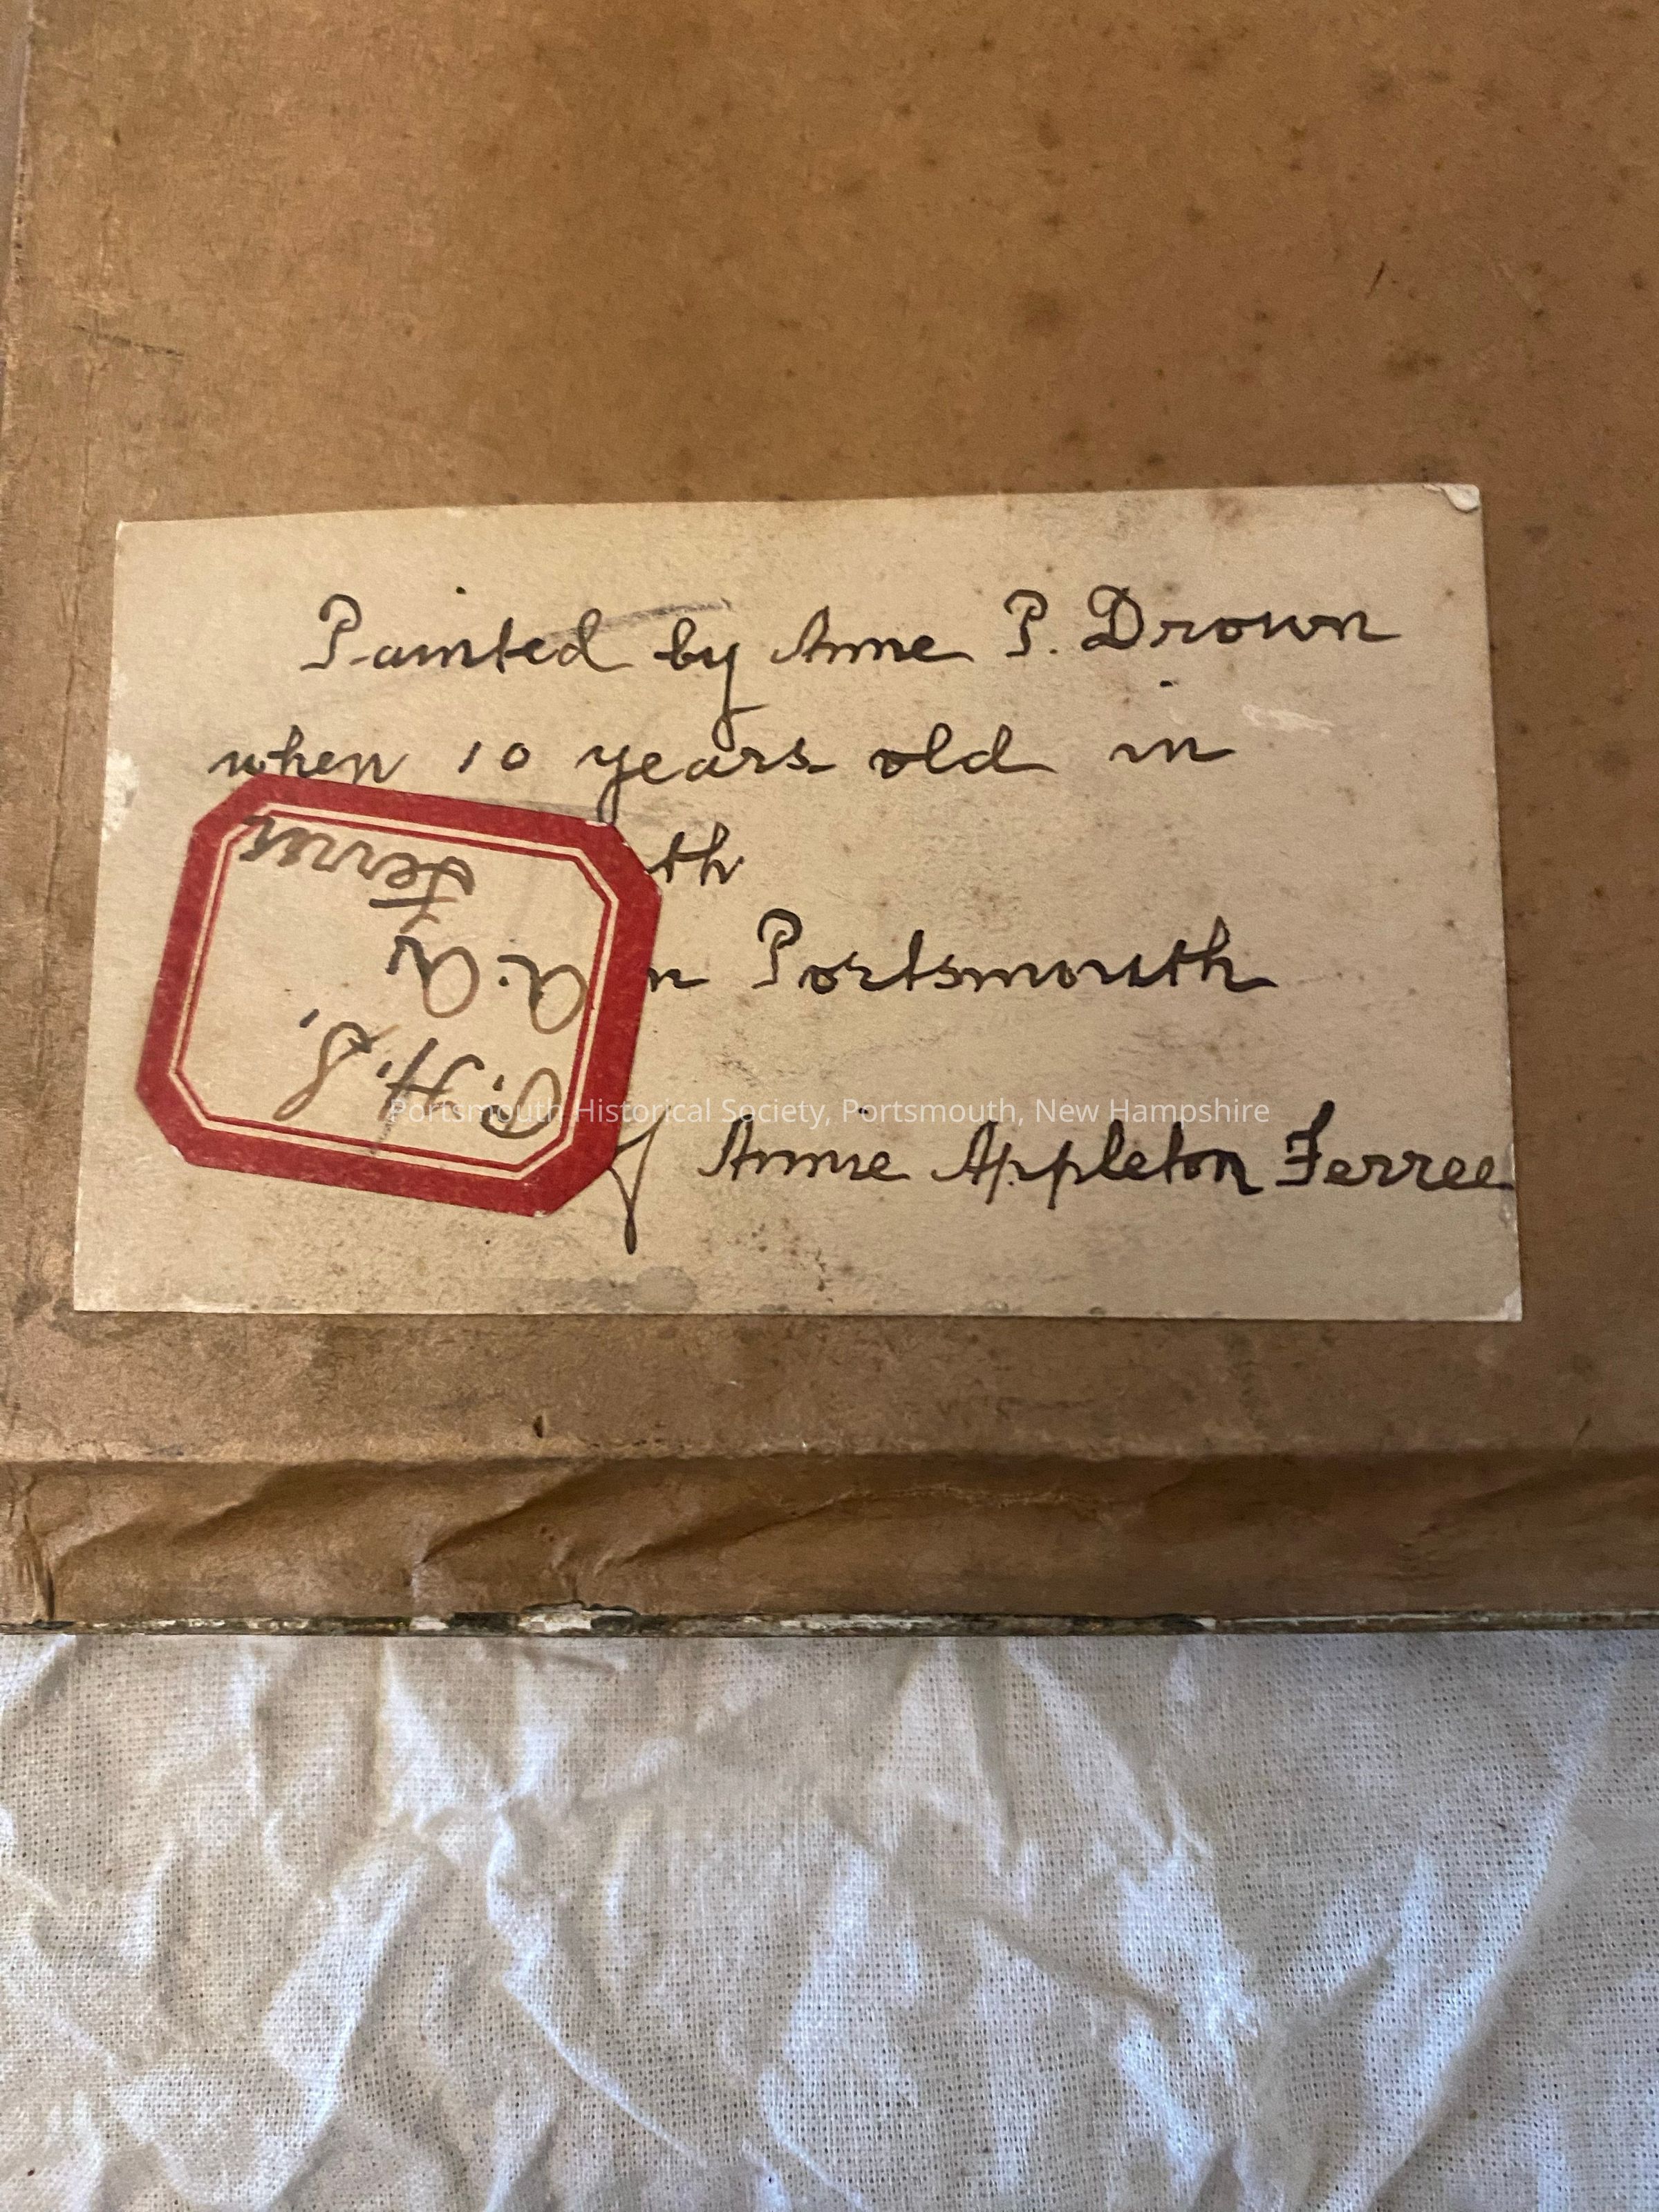 Painted by Anne P. Drown
when 10 years old in
th
n Portsmouth
f Annie Appleton Ferree
P.H.S.
A.A.
Ferree
Portsmouth Historical Society, Portsmouth, New Hampshire